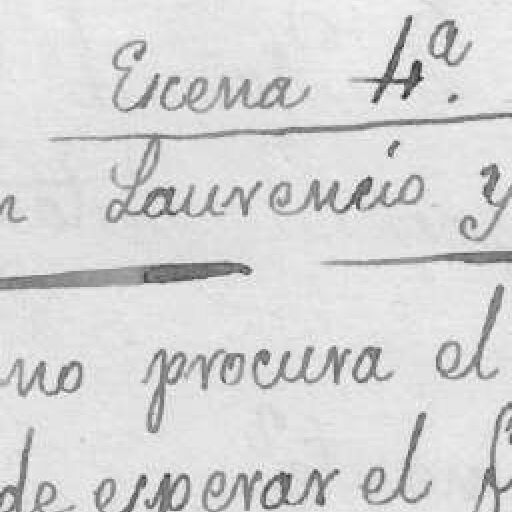 Escena 4ª.
n Laurencio y
no procura el
de esperar el